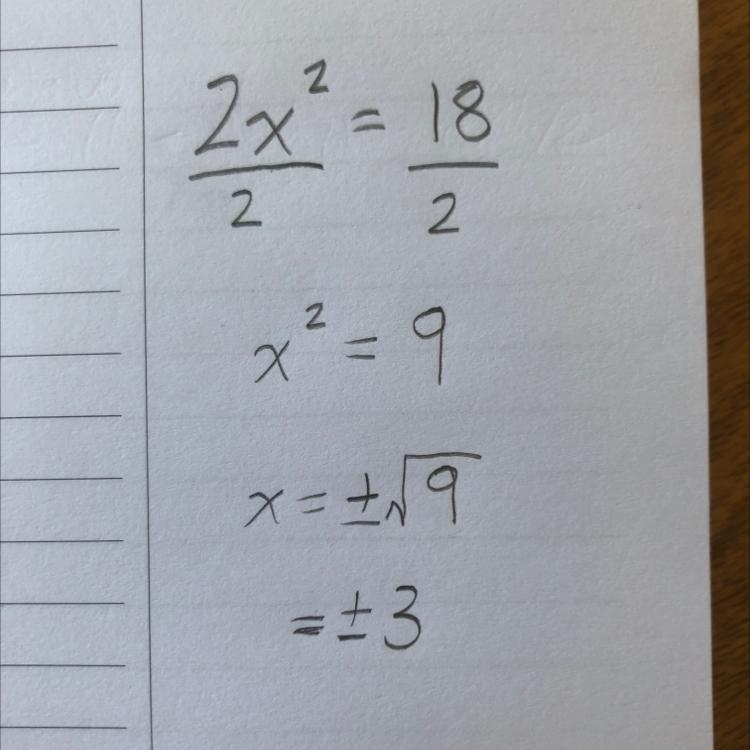 2x² = 18
2 2
x² = 9
x = ±√9
= ±3